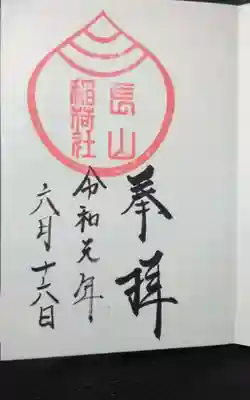 長山
稲荷社
奉拝
令和元年
六月十六日